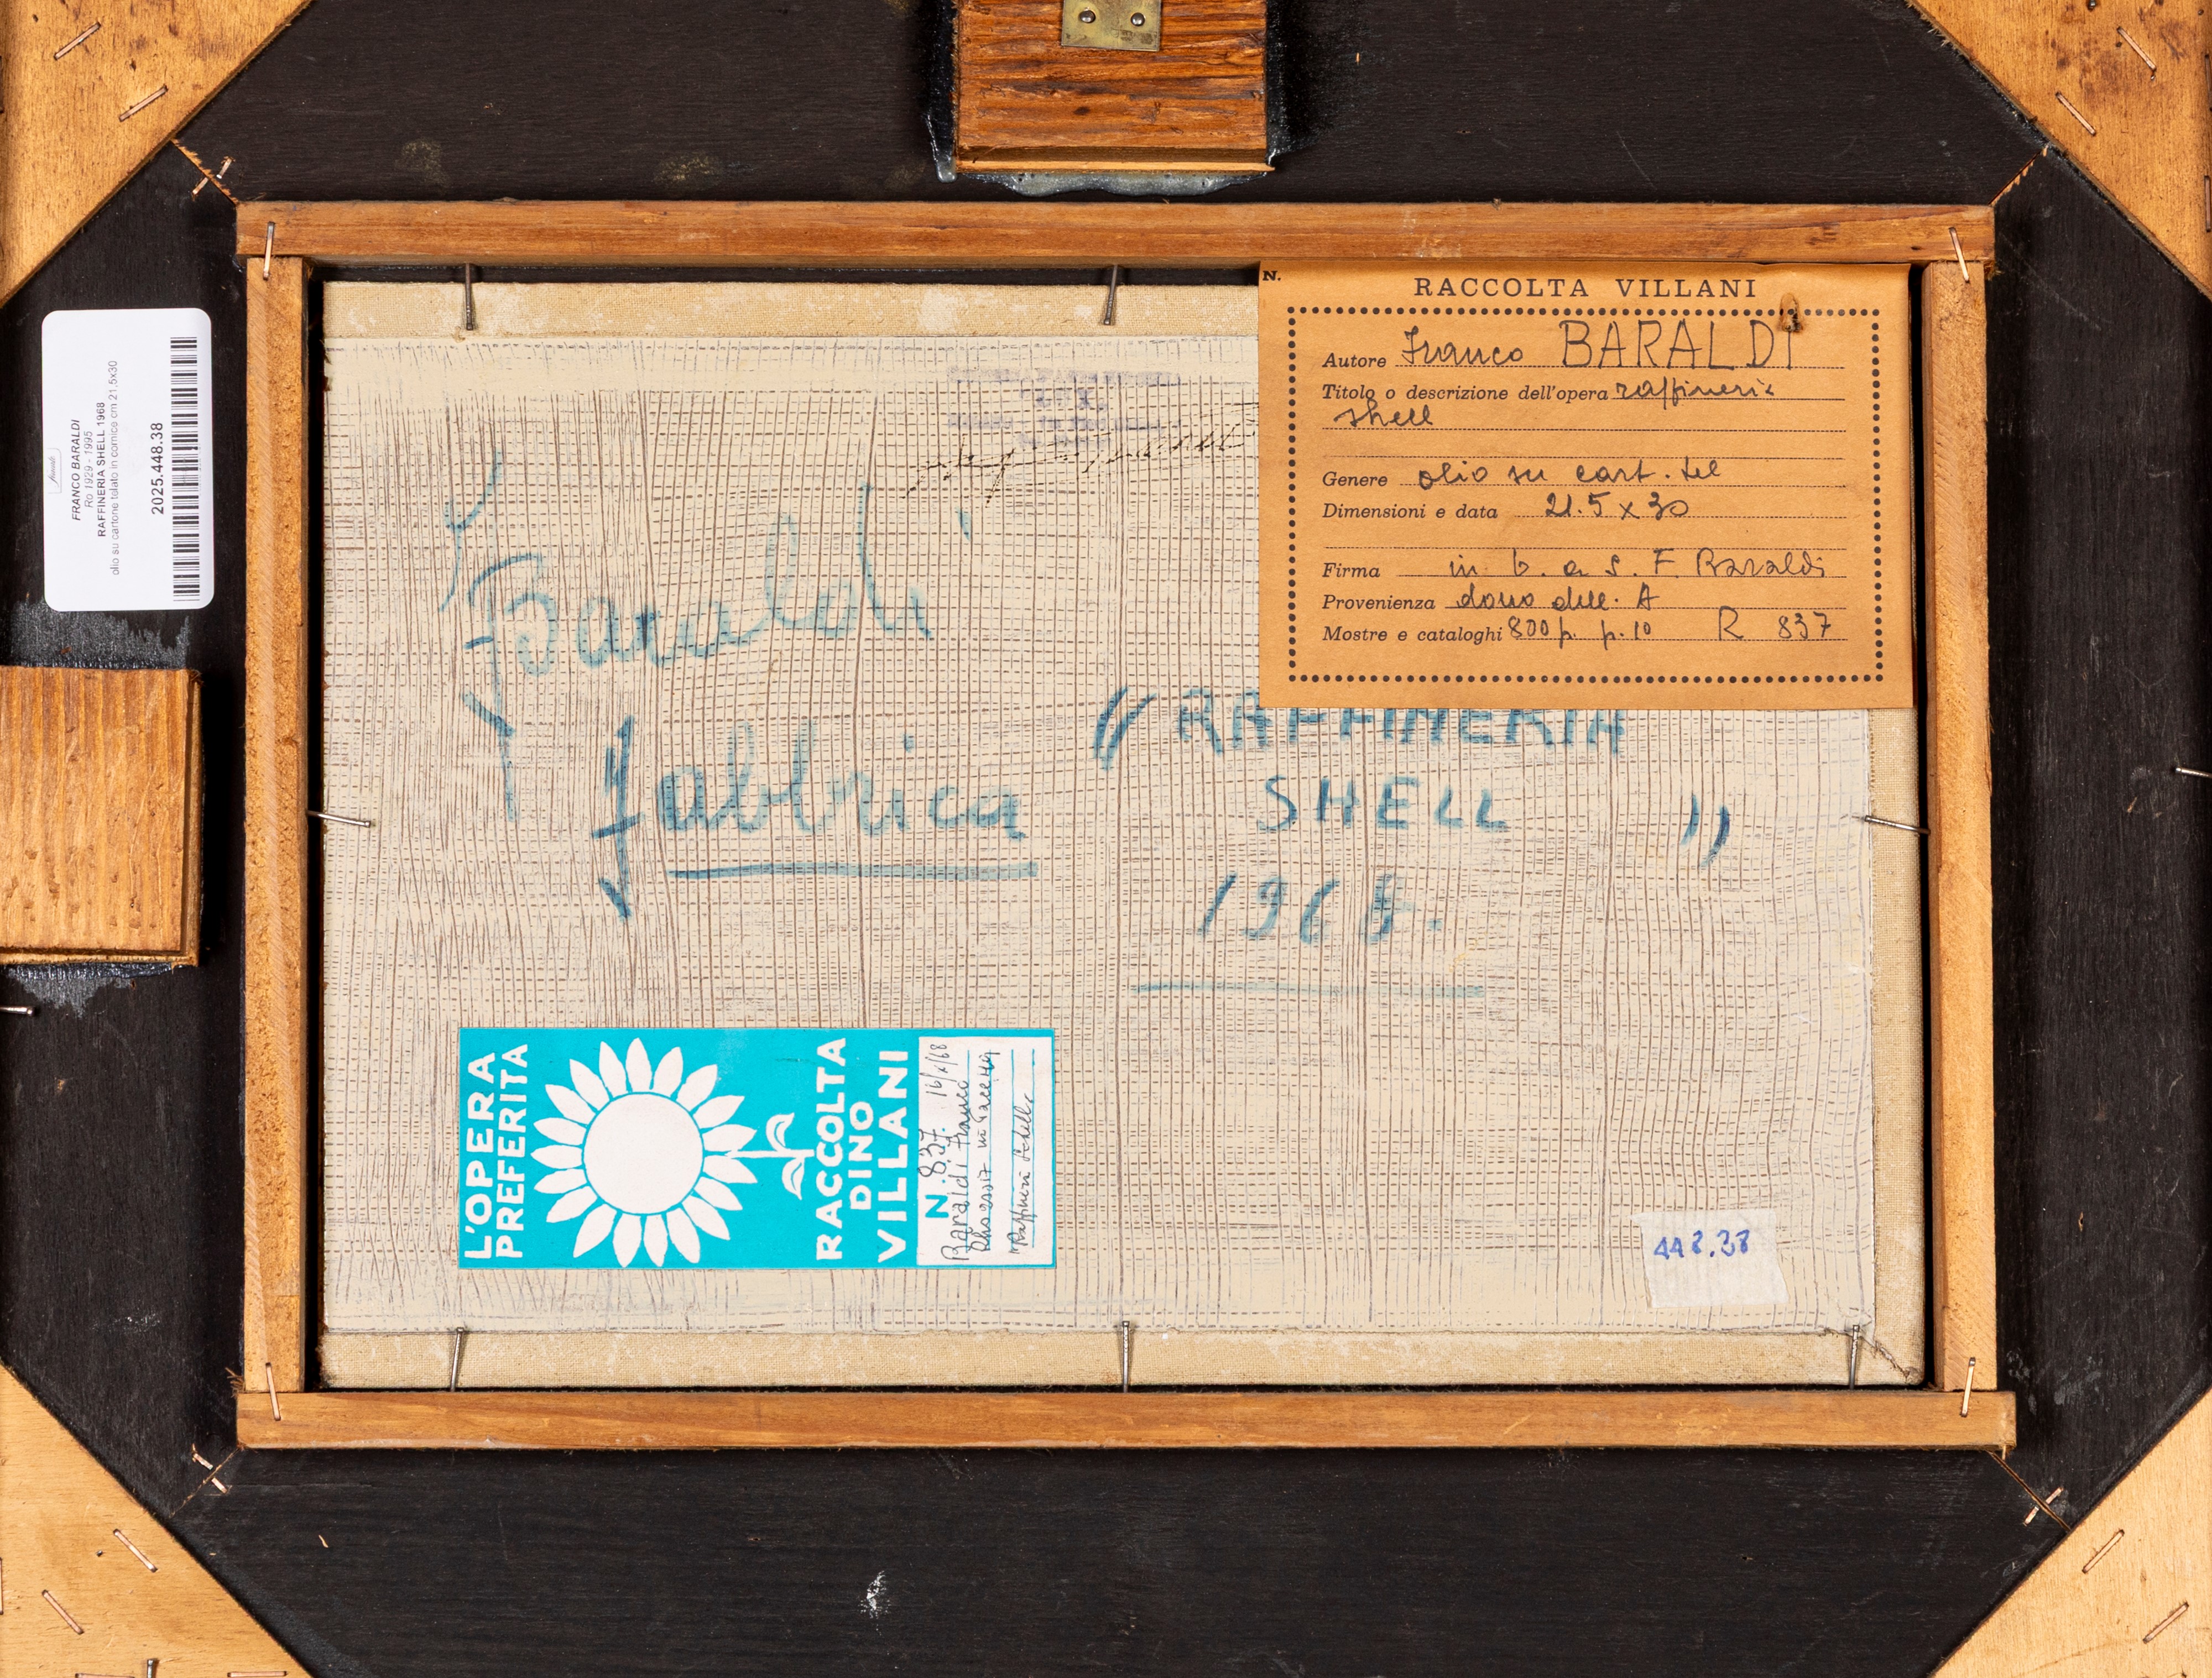 FRANCO BARALDI
Ro 1929 - 1995
RAFFINERIA SHELL 1968
olio su cartone telato in cornice cm 21,5x30
2025.448.38
N.
RACCOLTA VILLANI
Autore Franco BARALDI
Titolo o descrizione dell'opera raffineria
shell
Genere olio su cart. tel
Dimensioni e data 21.5 x 30
Firma in b. a s. F. Baraldi
Provenienza dono dell. A
Mostre e cataloghi 800 p. p. 10 R 837
Baraldi
fabbrica
"RAFFINERIA
SHELL "
1968.
L'OPERA
PREFERITA
RACCOLTA
DINO
VILLANI
N. 837.
Baraldi Franco
"Raffineria Schell"
448.38